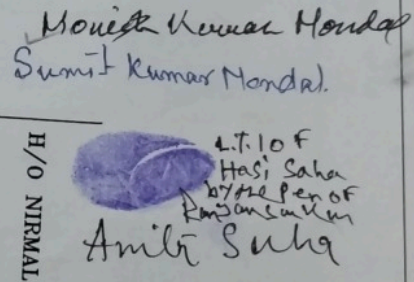 Monish Kumar Mondal
Sumit Kumar Mondal.
H/O NIRMAL
L.T.I OF
Hasi Saha
by the Pen of
Saha